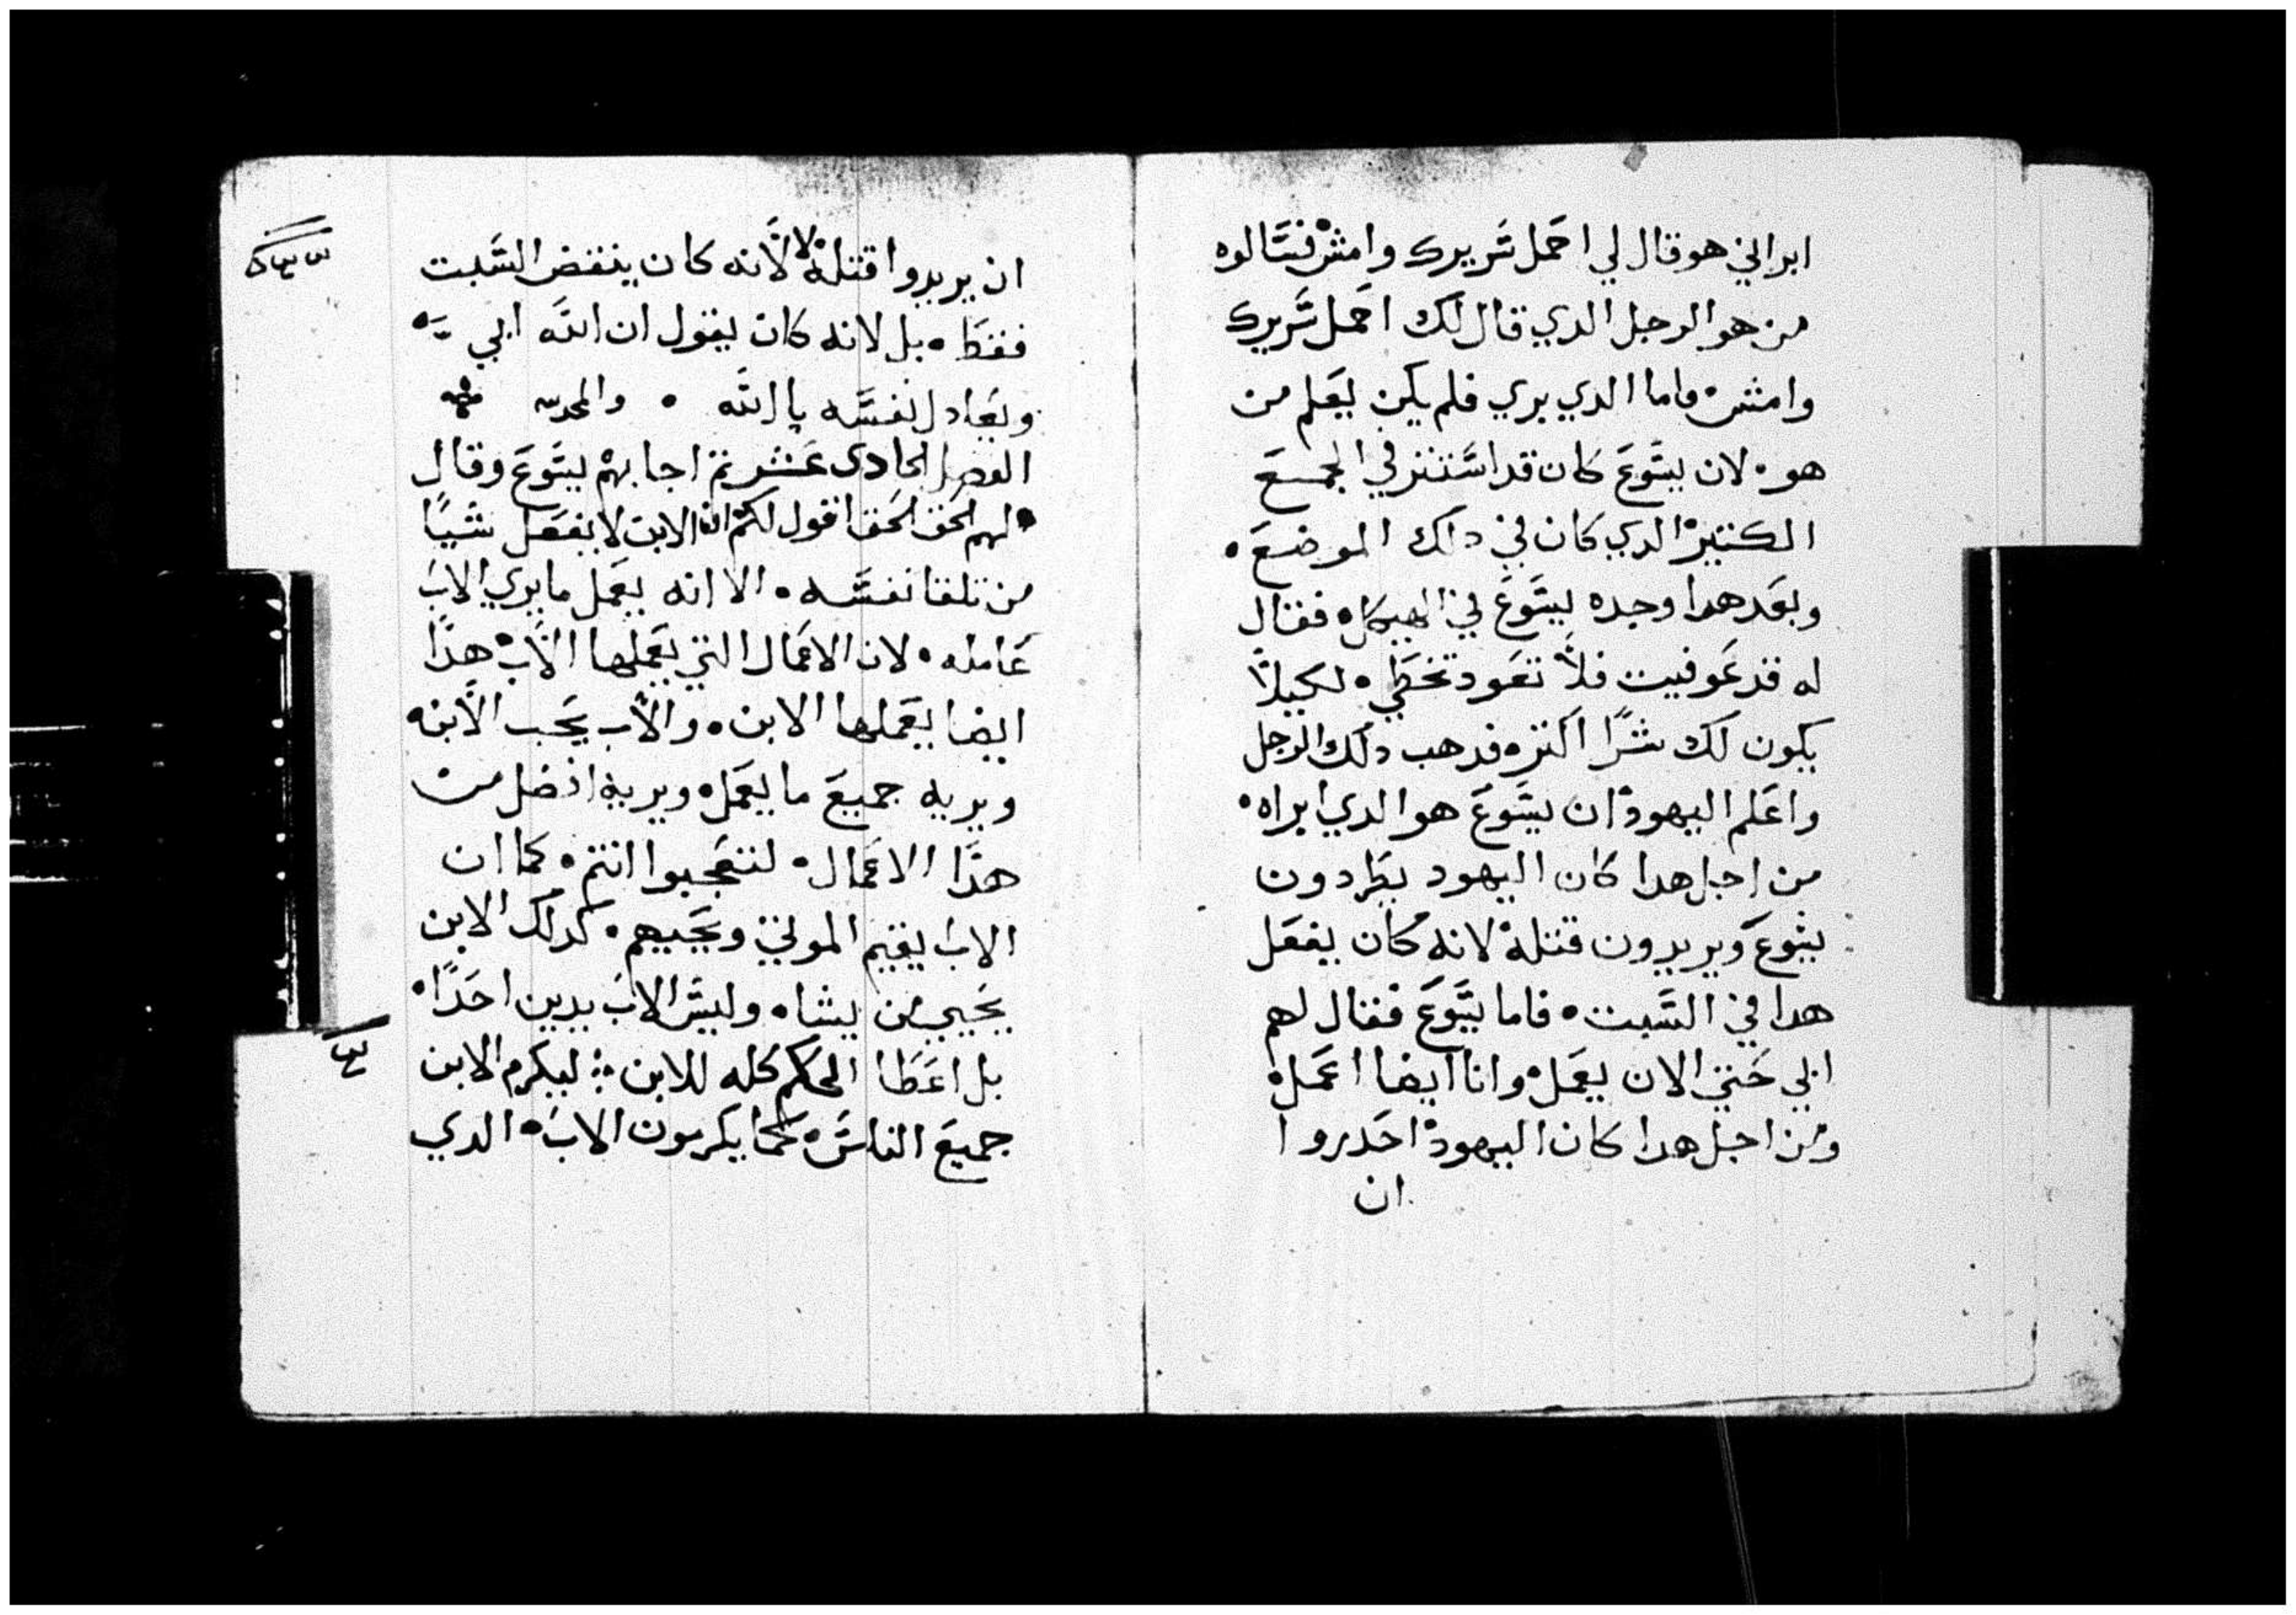 ابراني هو قال لي احمل سريرك وامش فسالوه
من هو الرجل الدي قال لك احمل سريرك
وامش واما الدي بري فلم يكن يعلم من
هو لان يسوع كان قد استتر في الجمع
الكتير الدي كان في دلك الموضع
وبعد هدا وجده يسوع في الهيكل فقال
له قد عوفيت فلا تعود تخطي لكيلا
يكون لك شرا اكتر فدهب دلك الرجل
واعلم اليهود ان يسوع هو الدي ابراه
من اجل هدا كان اليهود يطردون
يسوع ويريدون قتله لانه كان يفعل
هدا في السبت فاما يسوع فقال لهم
ابي حتي الان يعمل وانا ايضا اعمل
ومن اجل هدا كان اليهود احدروا
ان
ان يريدوا قتله لا لانه كان ينقض السبت
فقط بل لانه كان يقول ان الله ابي
ويعادل نفسه بالله
الفصل الحادي عشر تم اجابهم يسوع وقال
لهم الحق الحق اقول لكم ان الابن لا يفعل شيا
من تلقا نفسه الا انه يعمل ما يري الاب
عامله لان الاعمال التي يعملها الاب هدا
ايضا يعملها الابن والاب يحب الابن
ويريه جميع ما يعمل ويريه افضل من
هدا الاعمال لتتعجبوا انتم كما ان
الاب يقيم الموتي ويحييهم كدلك الابن
يحيي من يشاه وليس الاب يدين احدا
بل اعطا الحكم كله للابن ليكرم الابن
جميع الناس كما يكرمون الاب الدي